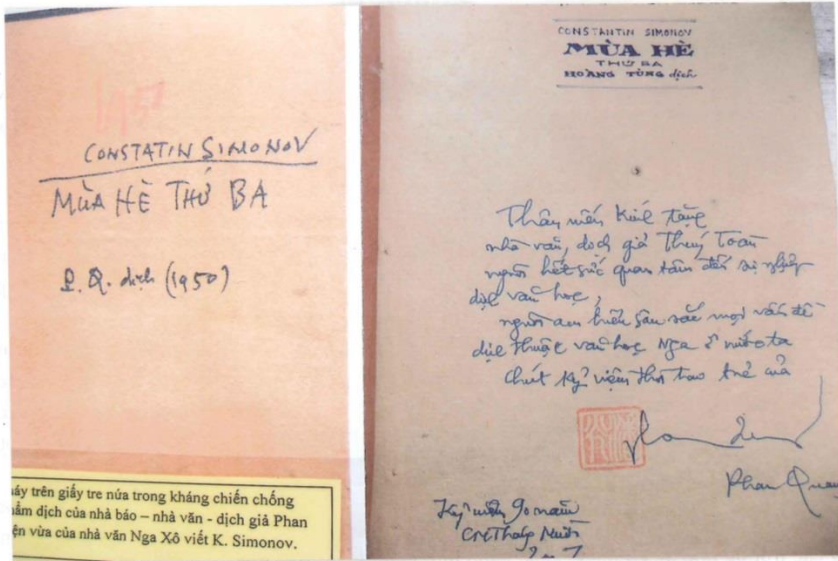 1950
CONSTATIN SIMONOV
MÙA HÈ THỨ BA
P. Q. dịch (1950)
máy trên giấy tre nứa trong kháng chiến chống
phẩm dịch của nhà báo – nhà văn - dịch giả Phan
vừa của nhà văn Nga Xô viết K. Simonov.
CONSTANTIN SIMONOV
MÙA HÈ
THỨ BA
HOÀNG TÙNG dịch
Thân mến kính tặng
nhà văn, dịch giả Thúy Toàn
người hết sức quan tâm đến sự nghiệp
dịch văn học,
người am hiểu sâu sắc mọi vấn đề
dịch thuật văn học Nga ở nước ta
Chút kỷ niệm thời trai trẻ của
Phan Quang
Kỷ niệm 90 năm
CM Tháp Mười